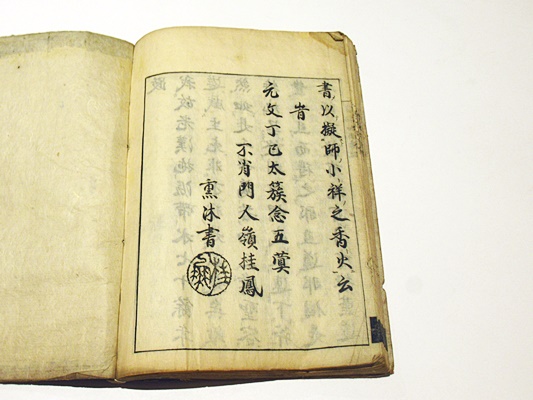 書以擬師小祥之香火云
旹
元文丁巳太簇念五蓂
不肖門人嶺桂鳳
熏沐書